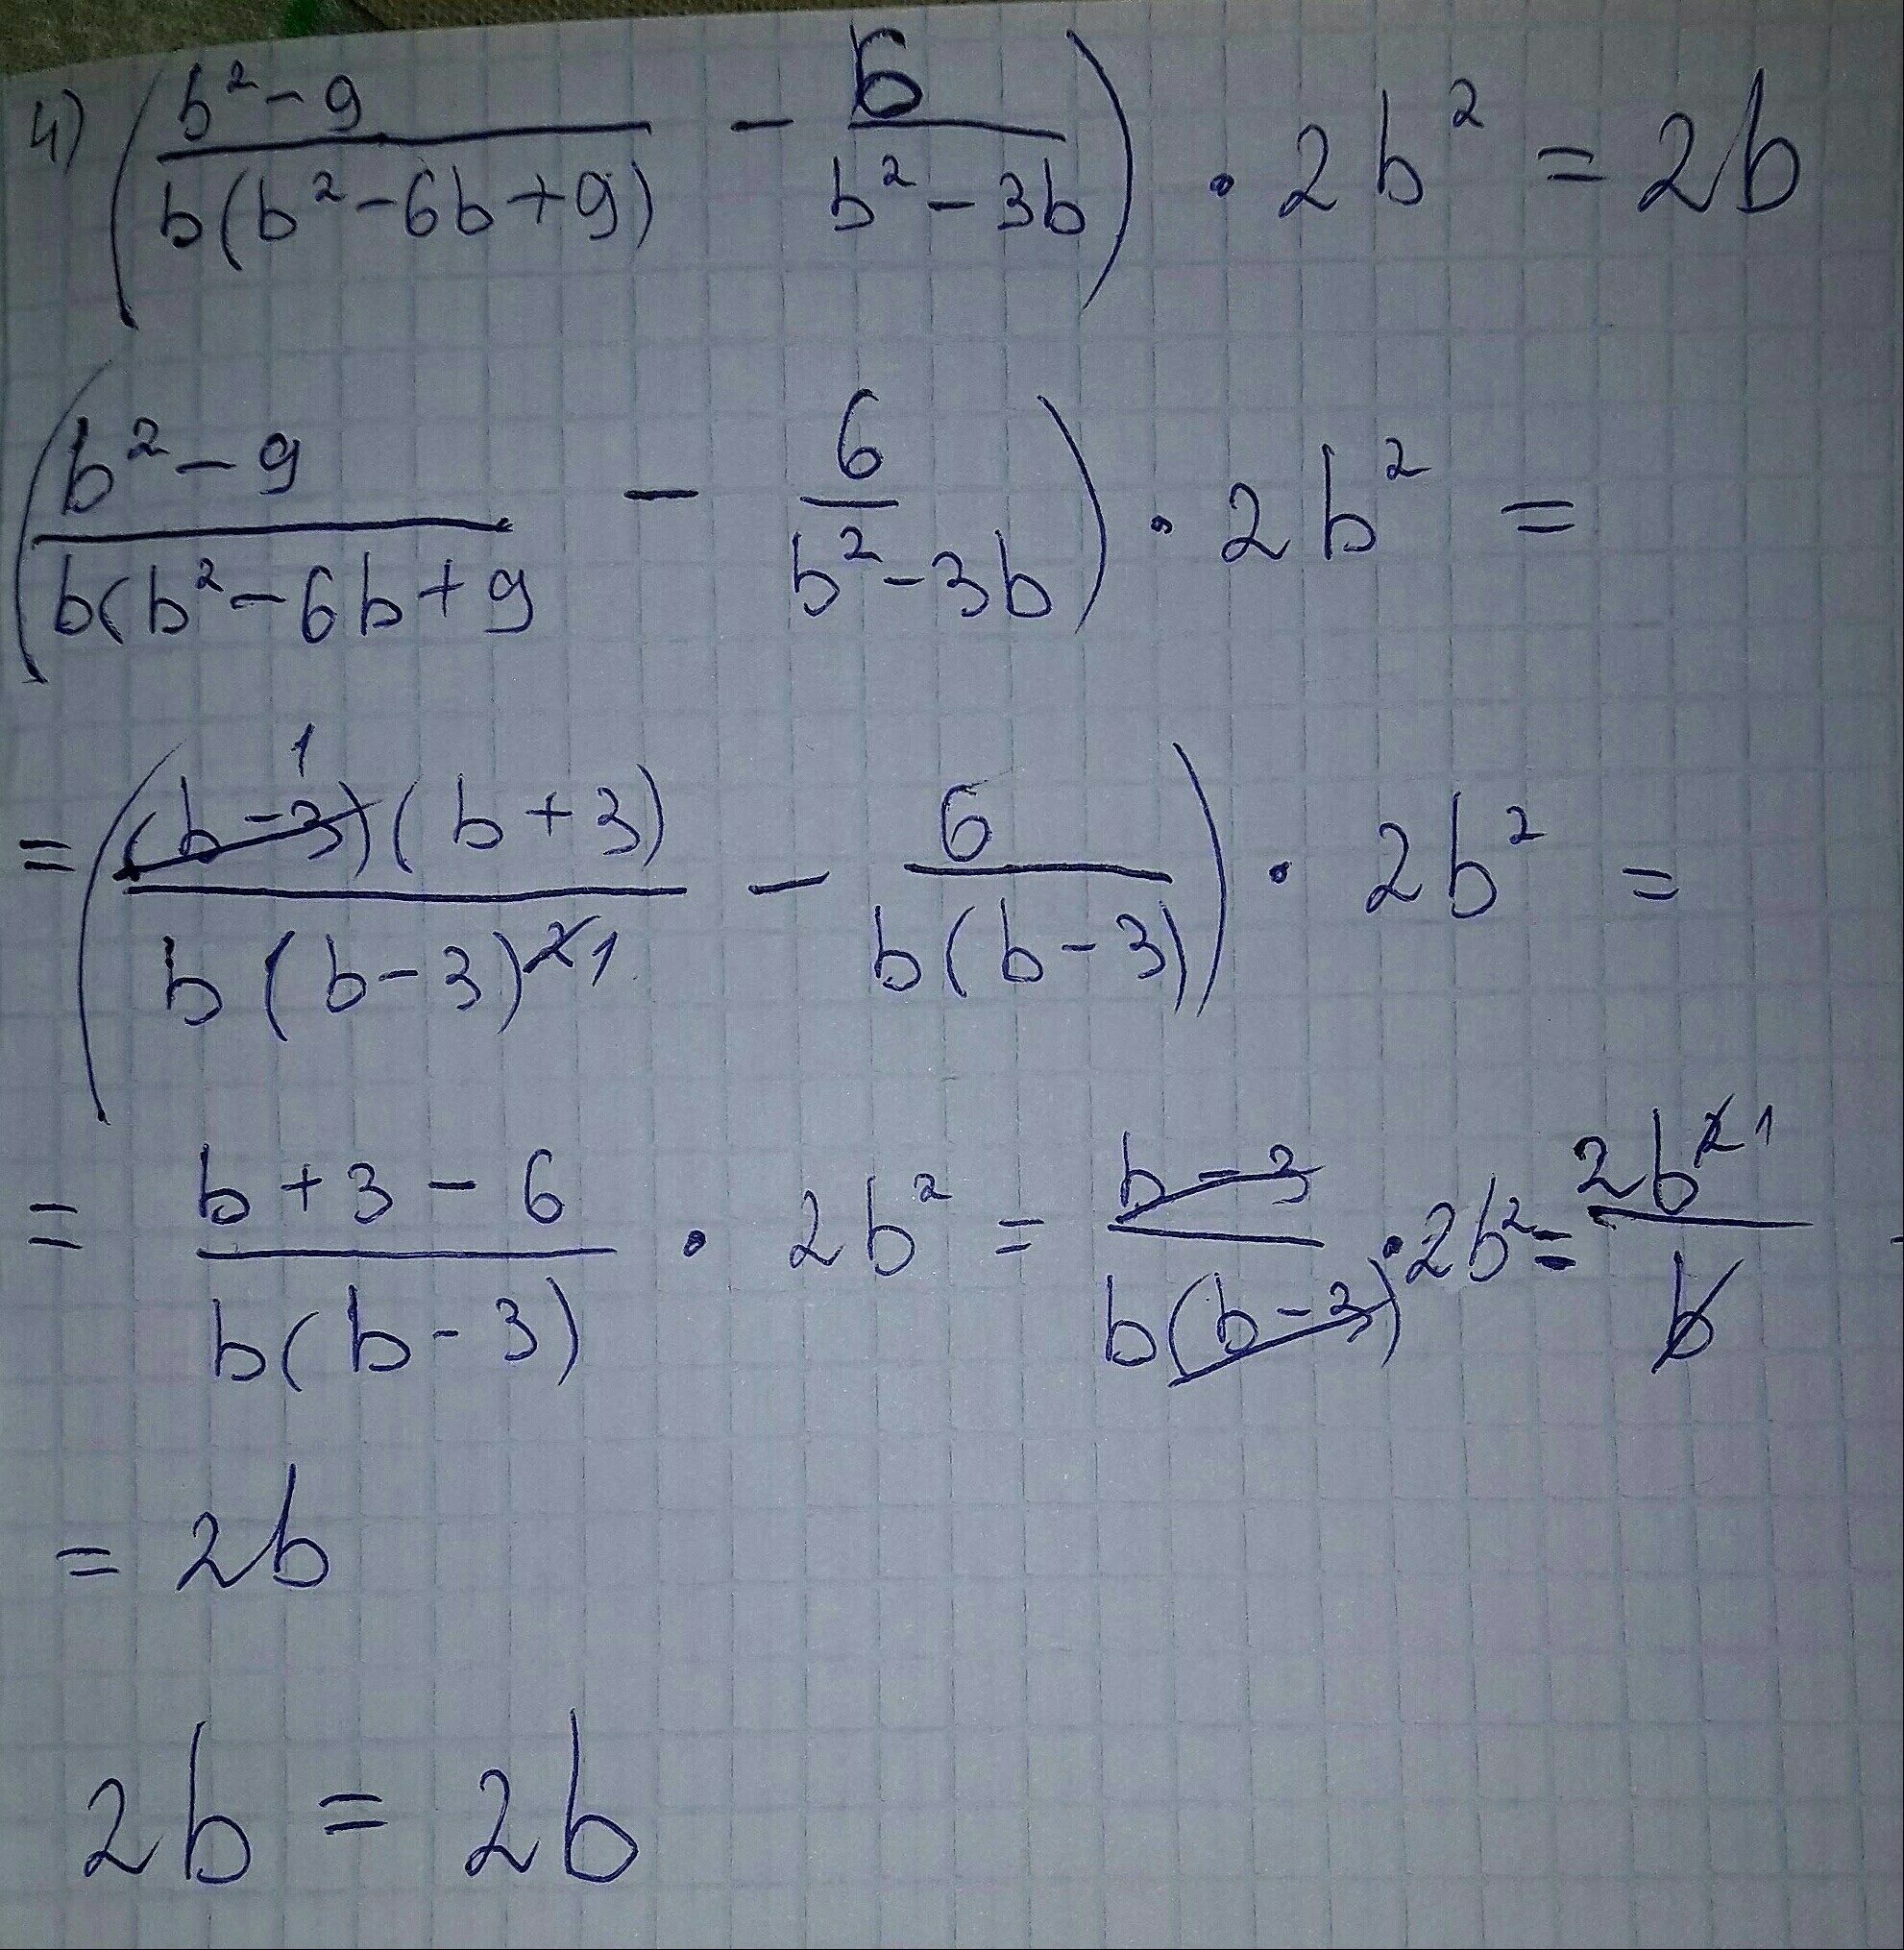 4) ( (b² - 9) / (b(b² - 6b + 9)) - 6 / (b² - 3b) ) · 2b² = 2b
( (b² - 9) / (b(b² - 6b + 9) - 6 / (b² - 3b) ) · 2b² =
= ( (b - 3)¹(b + 3) / (b(b - 3)² ¹) - 6 / (b(b - 3)) ) · 2b² =
= (b + 3 - 6) / (b(b - 3)) · 2b² = (b - 3) / (b(b - 3)) · 2b² = 2b² ¹ / b -
= 2b
2b = 2b